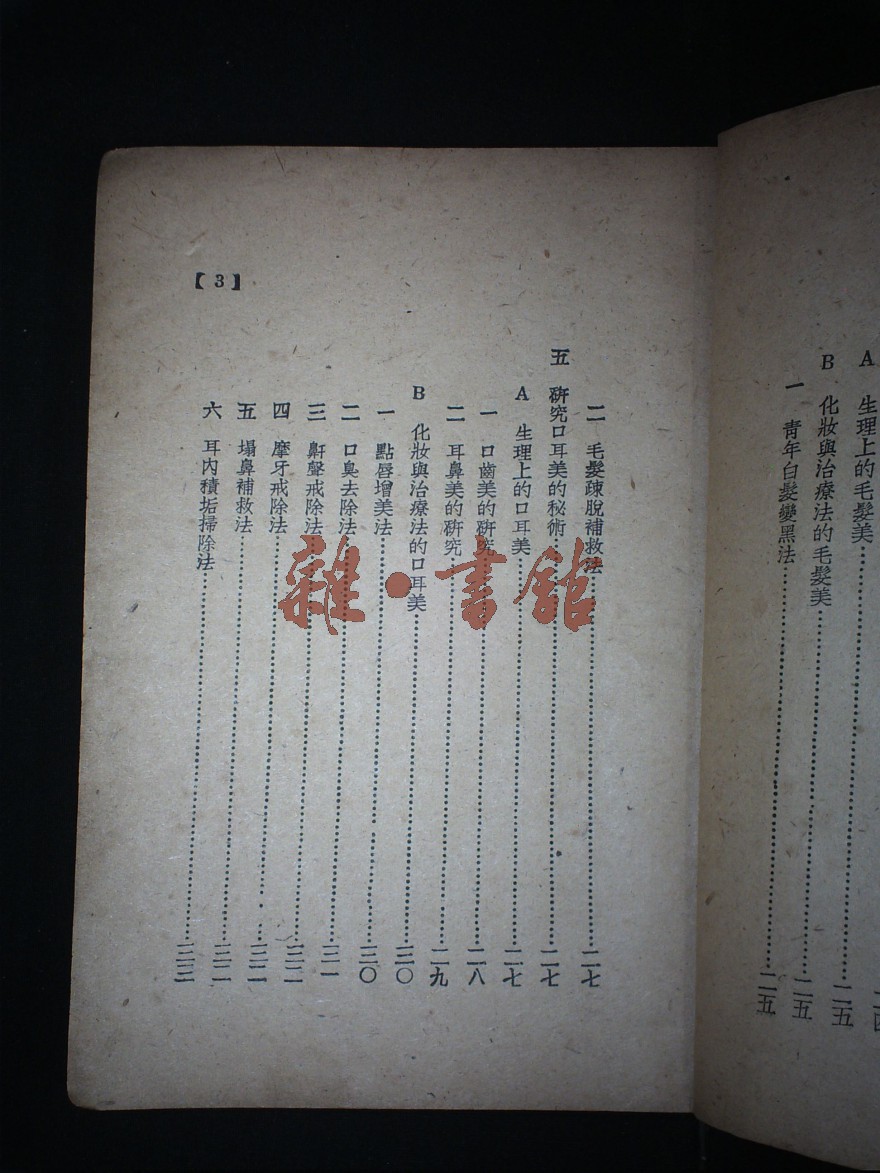 A 生理上的毛髮美……二五
B 化妝與治療法的毛髮美……二五
一 靑年白髮變黑法……二五
二 毛髮疎脫補救法……二七
五 硏究口耳美的秘術……二七
A 生理上的口耳美……二七
一 口齒美的硏究……二八
二 耳鼻美的硏究……二九
B 化妝與治療法的口耳美……三〇
一 點唇增美法……三〇
二 口臭去除法……三一
三 鼾聲戒除法……三二
四 摩牙戒除法……三二
五 塌鼻補救法……三二
六 耳內積垢掃除法……三三
【3】
雜·書館